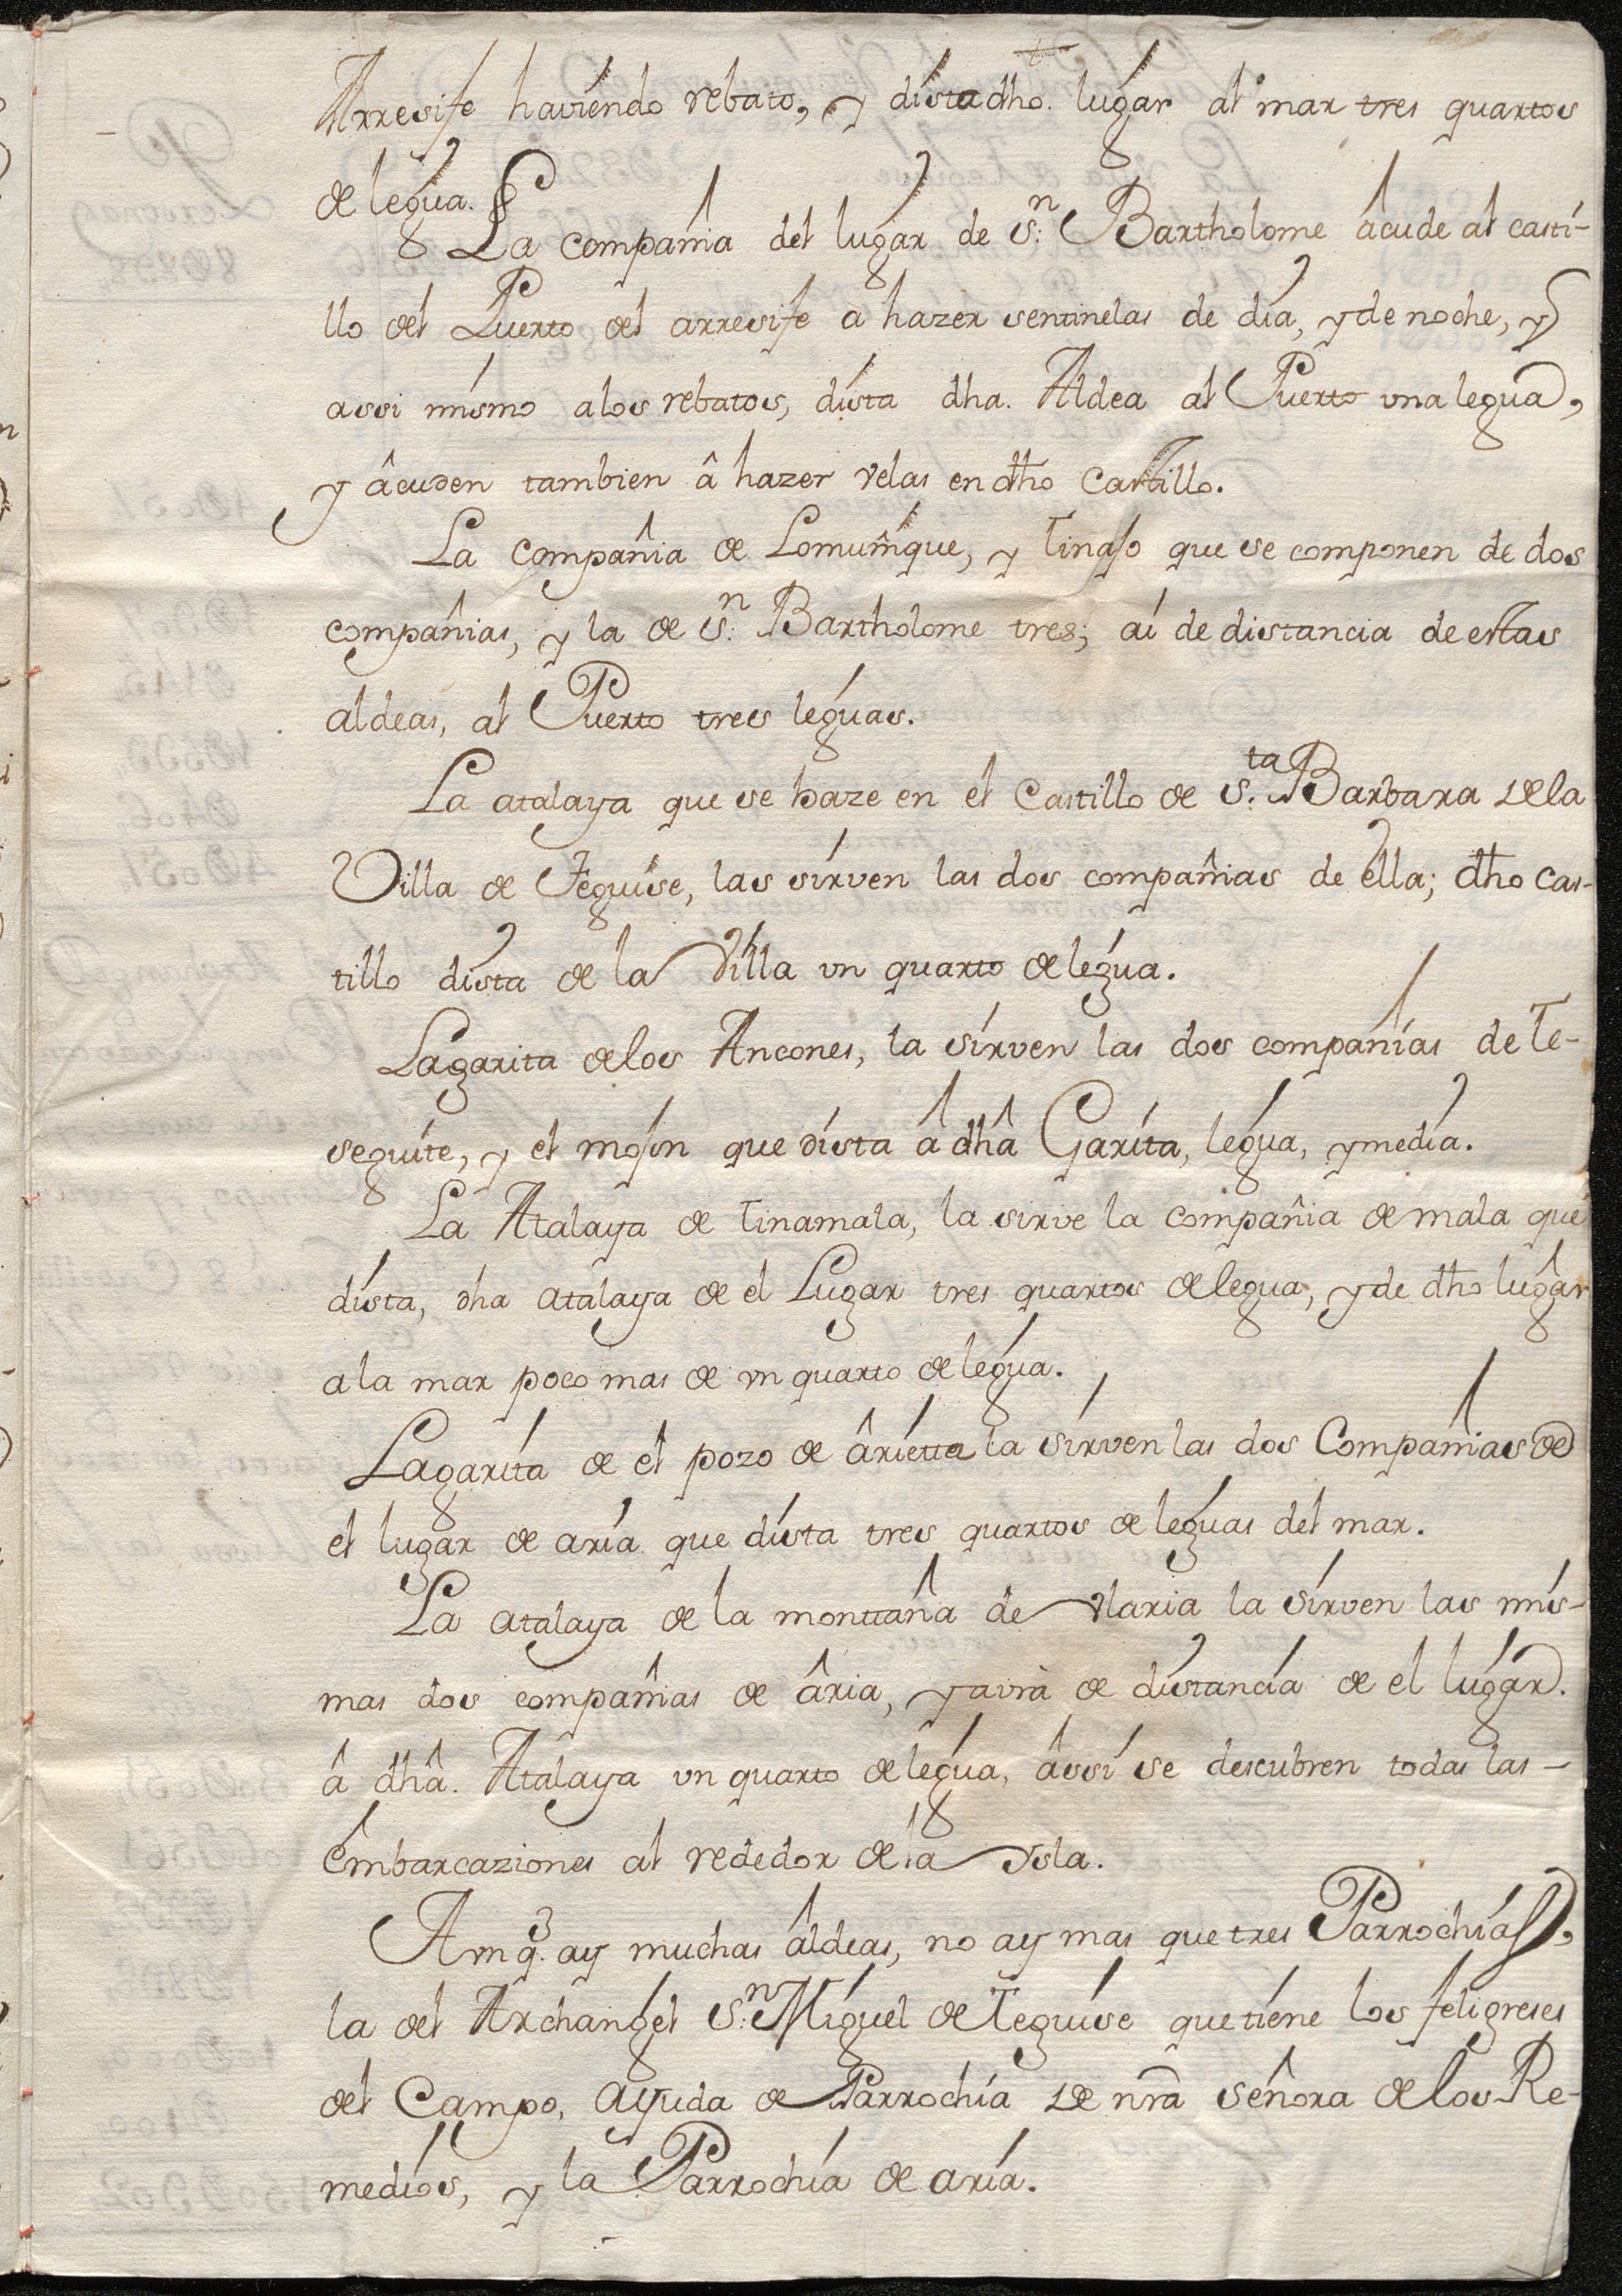 Arresife haviendo rebato, y dista dho. lugar al mar tres quartos
de legua.
La compañia del lugar de Sn. Bartholome acude al casti-
llo del Puerto del arresife a hazer sentinelas de dia, y de noche, y
assi mismo a los rebatos, dista dha. Aldea al Puerto una legua,
y âcuden tambien â hazer velas en dho Castillo.
La compañia de Lomuñique, y Tinaso que se componen de dos
compañias, y la de Sn. Bartholome tres; ai de distancia de estas
aldeas, al Puerto tres leguas.
La atalaya que se haze en el Castillo de Sta. Barbara de la
Villa de Teguise, las sirven las dos compañias de ella; dho cas-
tillo dista de la Villa un quarto de legua.
La garita de los Ancones, la sirven las dos compañias de Te-
seguite, y el mojon que dista â dhâ Garita, legua, y media.
La Atalaya de Tinamala, la sirve la compañia de mala que
dista, dha atalaya de el Lugar tres quartos de legua, y de dho lugar
a la mar poco mas de vn quarto de legua.
La garita de el pozo de ârietta la sirven las dos Compañias de
el lugar de aria que dista tres quartos de leguas del mar.
La atalaya de la monttaña de vlaria la sirven las mis-
mas dos compañias de âria, y avrà de distancia de el lugar.
â dhâ. Atalaya vn quarto de legua, âssi se descubren todas las-
embarcaziones al rededor de la ysla.
Aunq. ay muchas âldeas, no ay mas que tres Parrochias,
la del Archangel Sn. Miguel de Teguise que tiene los feligreses
del Campo, ayuda de Parrochia de nrâ señora de los Re-
medios, y la Parrochia de aria.